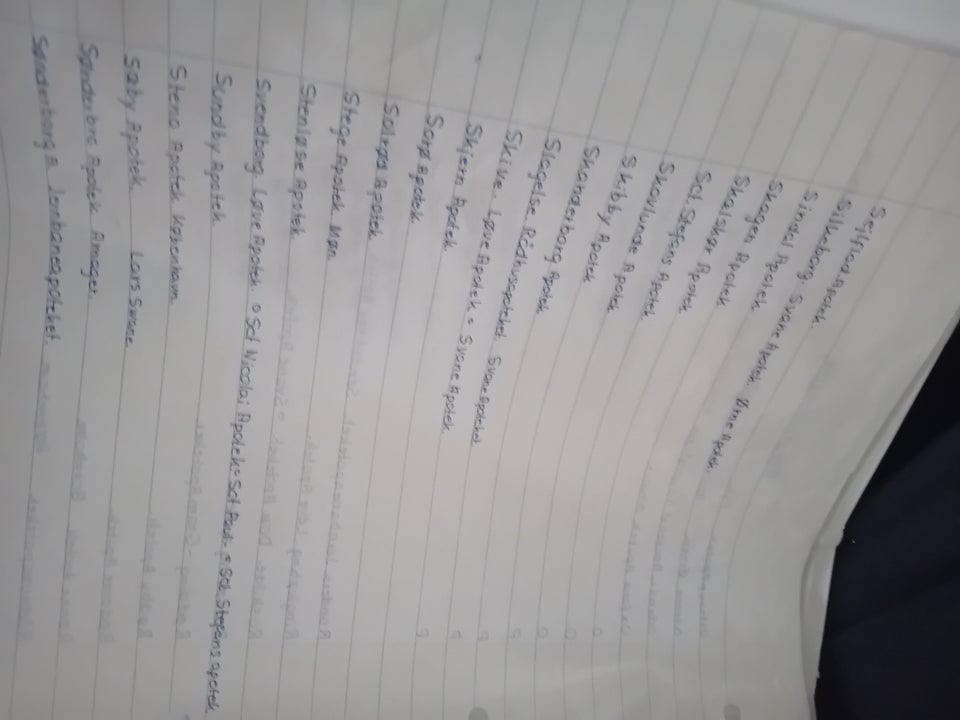 Sejlflod Apotek.
Silkeborg. Svane Apotek. Ørne Apotek.
Sindal Apotek.
Skagen Apotek.
Skælskør Apotek
Sct. Stefans Apotek
Skovlunde Apotek
Skibby Apotek
Skanderborg Apotek
Slagelse Rådhusapoteket. Svane Apoteket.
Skive. Løve Apotek = Svane Apotek.
Skjern Apotek.
Sorø Apotek.
Solrød Apotek.
Stege Apotek Møn.
Stenløse Apotek.
Svendborg Løve Apotek = Sct Nicolai Apotek = Sct Paul = Sct. Stefans apotek.
Sundby Apotek.
Steno Apotek København.
Sæby Apotek. Lars Svane
Sønderbro Apotek Amager.
Sønderborg Jernbaneapoteket.